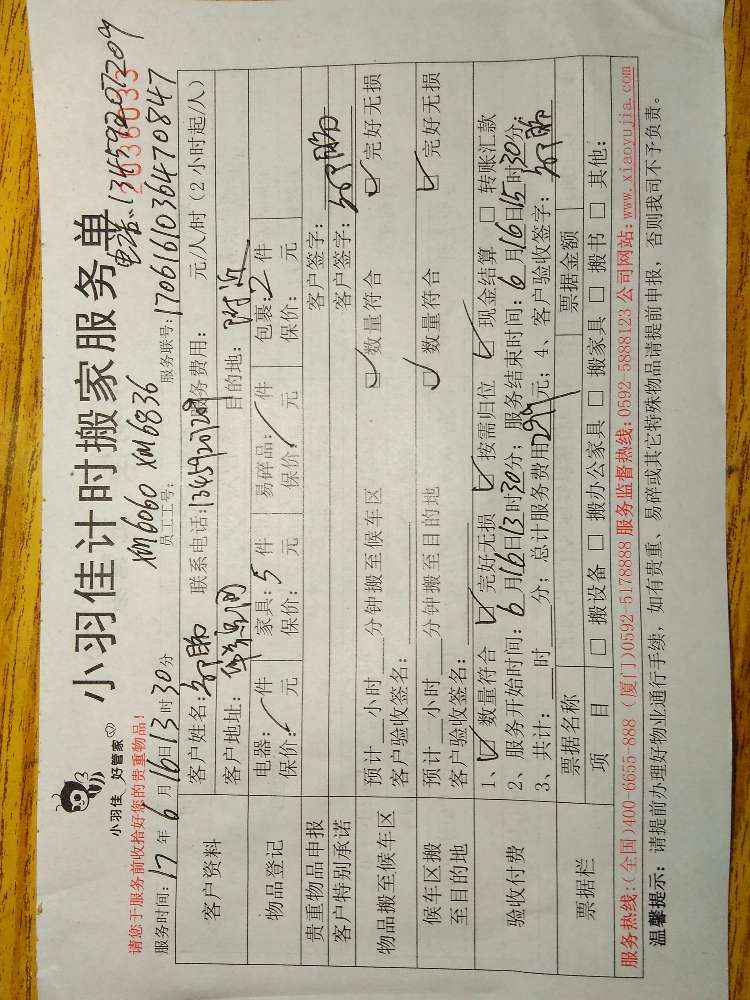 小羽佳 好管家
小羽佳计时搬家服务单
电话:13459297209
2036033
请您于服务前收拾好您的贵重物品!
XM6060 XM6836
服务时间:17年6月16日13时30分 员工工号: 服务联号:1706161036470847
客户资料
客户姓名: 联系电话:13459297209 服务费用: 元/人/时(2小时起/人)
客户地址: 目的地:附近
物品登记
电器: 件 家具:5件 易碎品: 件 包裹:2件
保价: 元 保价: 元 保价: 元 保价: 元
贵重物品申报 客户签字:
客户特别承诺 客户签字:
物品搬至候车区
预计 小时 分钟搬至候车区 ☑数量符合 ☑完好无损
客户验收签名:
候车区搬至目的地
预计 小时 分钟搬至目的地 ☑数量符合 ☑完好无损
客户验收签名:
验收付费
1、☑数量符合 ☑完好无损 ☑按需归位 ☑现金结算 □转账汇款
2、服务开始时间:6月16日13时30分;服务结束时间:6月16日15时30分;
3、共计: 时 分;总计服务费用299元;4、客户验收签字:
票据栏
票据名称 票据金额
项目 □搬设备 □搬办公家具 □搬家具 □搬书 □其他:
服务热线:(全国)400-6655-888 (厦门)0592-5178888 服务监督热线:0592-5888123 公司网站:www.xiaoyujia.com
温馨提示:请提前办理好物业通行手续,如有贵重、易碎或其它特殊物品请提前申报,否则我司不予负责。